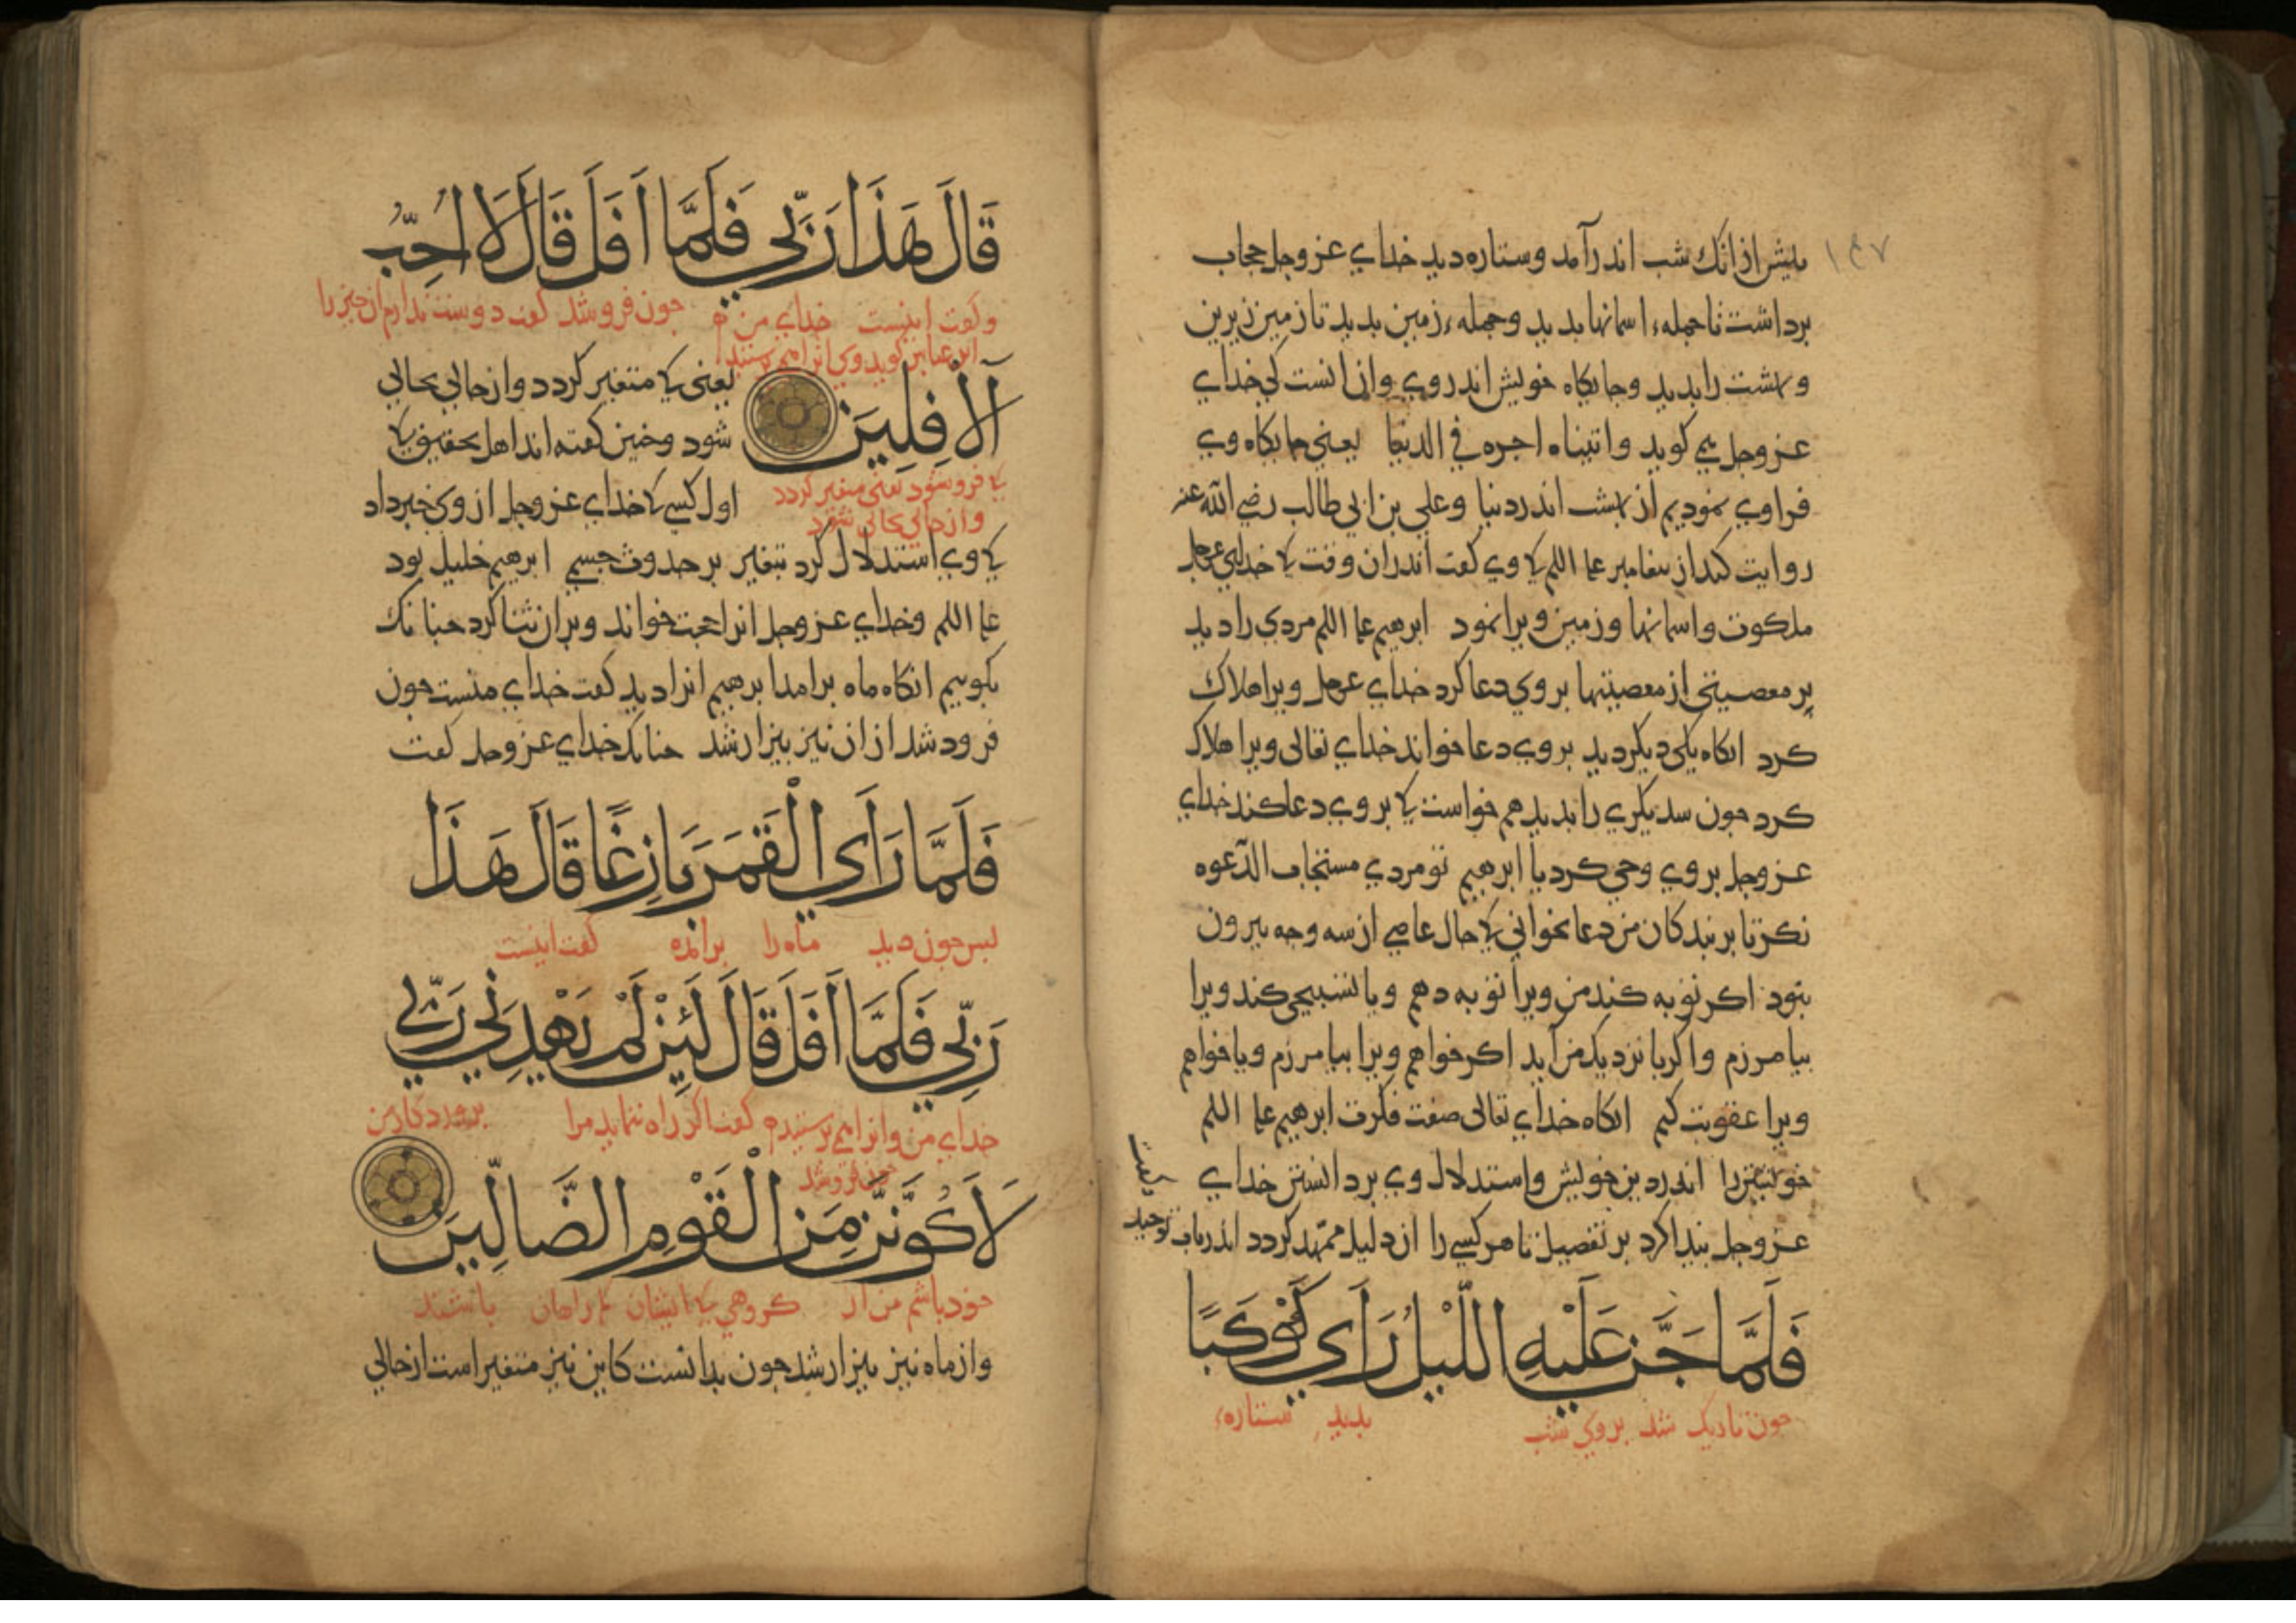 بیش از انک شب اندر آمد و ستاره دید خداي عز وجل حجاب
برداشت تا جملهء اسمانها بدید وجملهء زمین بدید تا زمین زیرین
وبهشت را بدید وجایکاه خویش اندر وي وازانست کي خداي
عز وجل مي کوید واتیناه اجره في الدنیا یعني جایکاه وي
فرا وي نمودیم از بهشت اندر دنیا وعلي بن ابي طالب رضي الله عنه
روایت کند از بیغامبر علیه السلم کي وي کفت اندران وقت کي خداي عز وجل
ملکوت واسمانها وزمین ویرا نمود ابرهیم علیه السلم مردي را دید
بر معصیتي از معصیتها بر وي دعا کرد خداي عز وجل ویرا هلاک
کرد انکاه یکي دیکر دید بر وي دعا خواند خداي تعالی ویرا هلاک
کرد جون سدیکري را بدید هم خواست کي بر وي دعا کند خداي
عز وجل بر وي وحي کرد یا ابرهیم تو مردي مستجاب الدعوه
نکر تا بر بندکان من دعا نخواني کي حال عاصي از سه وجه بیرون
نبود اکر توبه کند من ویرا توبه دهم ویا تسبیحي کند ویرا
بیامرزم واکر با نزدیک من آید اکر خواهم ویرا بیامرزم ویا خواهم
ویرا عقوبت کنم انکاه خداي تعالی صفت فکرت ابرهیم علیه السلم
خویشتن را اندر دین خویش واستدلال وي بر دانستن خداي
عز وجل بیدا کرد بر تفصیل تا هر کسي را ان دلیل ممهد کردد اندر باب توحید
کفت
فَلَمَّا جَنَّ عَلَيْهِ اللَّيْلُ رَأَي كَوْكَبًا
جون تاریک شد بر وي شب بدید ستارهء
قَالَ هَذَا رَبِّي فَلَمَّا أَفَلَ قَالَ لَا أُحِبُّ
وکفت اینست خداي من جون فرو شد کفت دوست ندارم ان جیز را
ابن عباس کوید وي انرا مي برستید
الْآفِلِينَ یعني کي متغیر کردد واز حالي بحالي
شود وجنین کفته اند اهل تحقیق کي
کي فرو شود یعني متغیر کردد
واز حالي بحالي شود
اول کسي کي خداي عز وجل از وي خبر داد
کي وي استدلال کرد بتغیر بر حدوث جسم ابرهیم خلیل بود
علیه السلم وخداي عز وجل انرا حجت خواند وبران ثنا کرد جنانک
بکوییم انکاه ماه برامد ابرهیم انرا دید کفت خداي منست جون
فرود شد از ان نیز بیزار شد جنانک خداي عز وجل کفت
فَلَمَّا رَأَي الْقَمَرَ بَازِغًا قَالَ هَذَا
بس جون دید ماه را برآمده کفت اینست
رَبِّي فَلَمَّا أَفَلَ قَالَ لَئِنْ لَمْ يَهْدِنِي رَبِّي
خداي من وانرا مي برستیدم کفت اکر راه ننماید مرا بروردکار من
جون فرو شد
لَأَكُونَنَّ مِنَ الْقَوْمِ الضَّالِّينَ
خود باشم من از کروهي کي ایشان کم راهان باشند
واز ماه نیز بیزار شد جون بدانست کاین نیز متغیر است از حالي